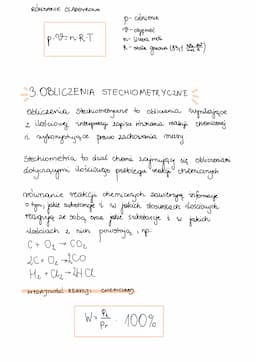 RÓWNANIE CLAPEYRONA
p·V=nRT
p - ciśnienie
V - objętość
n - liczba moli
R - stała gazowa (83,1
3. OBLICZENIA STECHIOMETRYCZNE
obliczenia stechiometryczne to obliczenia wynikające
z ilościowej interpretacji zapisu równania reakcji chemicznej
i wykorzystujące prawo zachowania masy
Stechiometria to dział chemii zajmujący się obliczeniami
dotyczącymi ilościowego przebiegu reakcji chemicznych
równanie reakcji chemicznych zawierają informacje
o tym, jakie substancje i w jakich stosunkach ilościowych
reagują ze sobą oraz jakie substancje i w jakich
ilościach z nich powstają, np:
C + O₂ → CO₂
2C + O₂ → 2CO
H₂ + Cl₂ → 2HCl
WYDAJNOŚĆ REAKCJI CHEMICZNEJ
W = · 100%